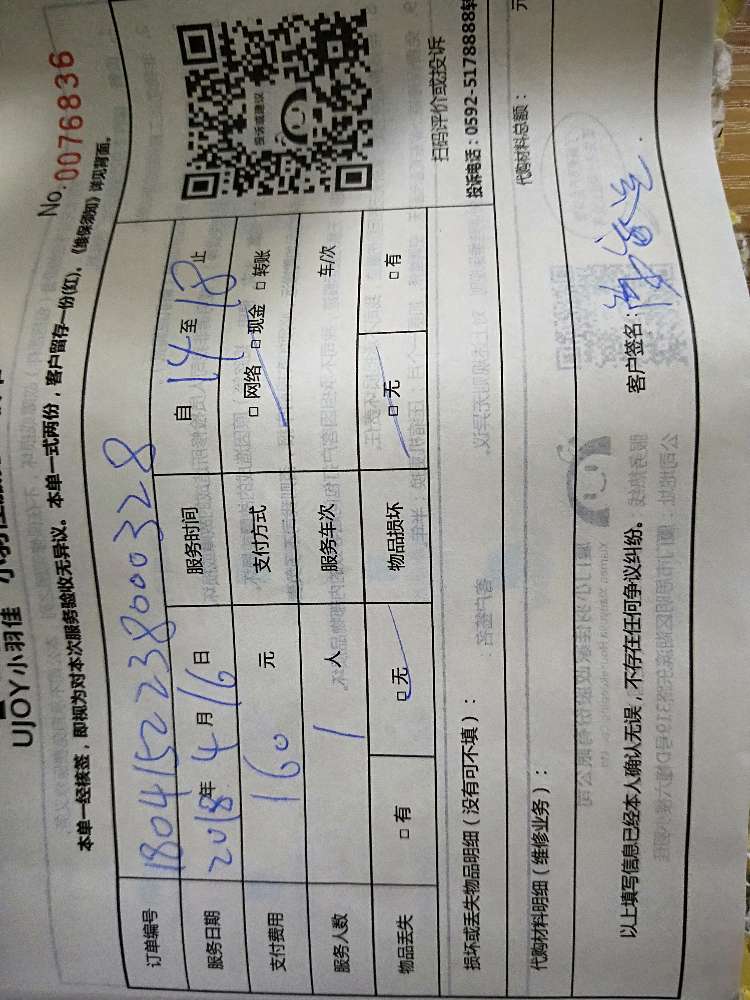 UJOY小羽佳
No.0076836
本单一经核签，即视为对本次服务验收无异议。本单一式两份，客户留存一份(红)。《维保须知》详见背面。
订单编号 180415223800032​8
服务日期 2018年4月16日 服务时间 自14至18止
支付费用 160元 支付方式 □网络 □现金 □转账
服务人数 1人 服务车次 车/次
物品丢失 □有 □无 物品损坏 □无 □有
投诉或建议
扫码评价或投诉
投诉电话：0592-5178888转
损坏或丢失物品明细（没有可不填）：
代购材料明细（维修业务）：
代购材料总额： 元
以上填写信息已经本人确认无误，不存在任何争议纠纷。
客户签名：